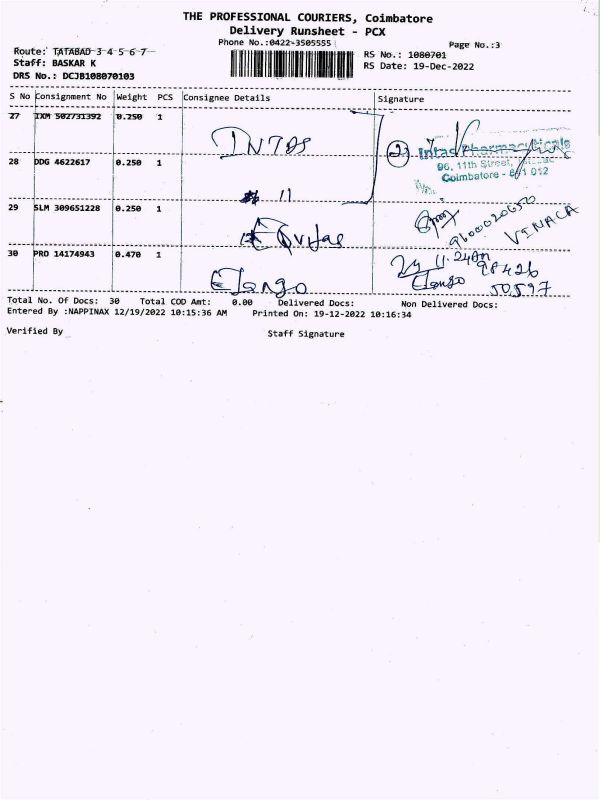 THE PROFESSIONAL COURIERS, Coimbatore
Delivery Runsheet - PCX
Phone No.:0422-3505555
Page No.:3
Route: TATABAD 3 4 5 6 7
Staff: BASKAR K
DRS No.: DCJB108070103
RS No.: 1080701
RS Date: 19-Dec-2022
S No Consignment No Weight PCS Consignee Details Signature
27 IXM 502731392 0.250 1
INTAS
2
Intas Pharmaceuticals
96, 11th Street,
Coimbatore - 641 012
28 DDG 4622617 0.250 1
11
29 SLM 309651228 0.250 1
Equitas
9600020650
VINACA
30 PRO 14174943 0.470 1
Elango
11.24An
Elango
98426
50597
Total No. Of Docs: 30 Total COD Amt: 0.00 Delivered Docs: Non Delivered Docs:
Entered By :NAPPINAX 12/19/2022 10:15:36 AM Printed On: 19-12-2022 10:16:34
Verified By
Staff Signature